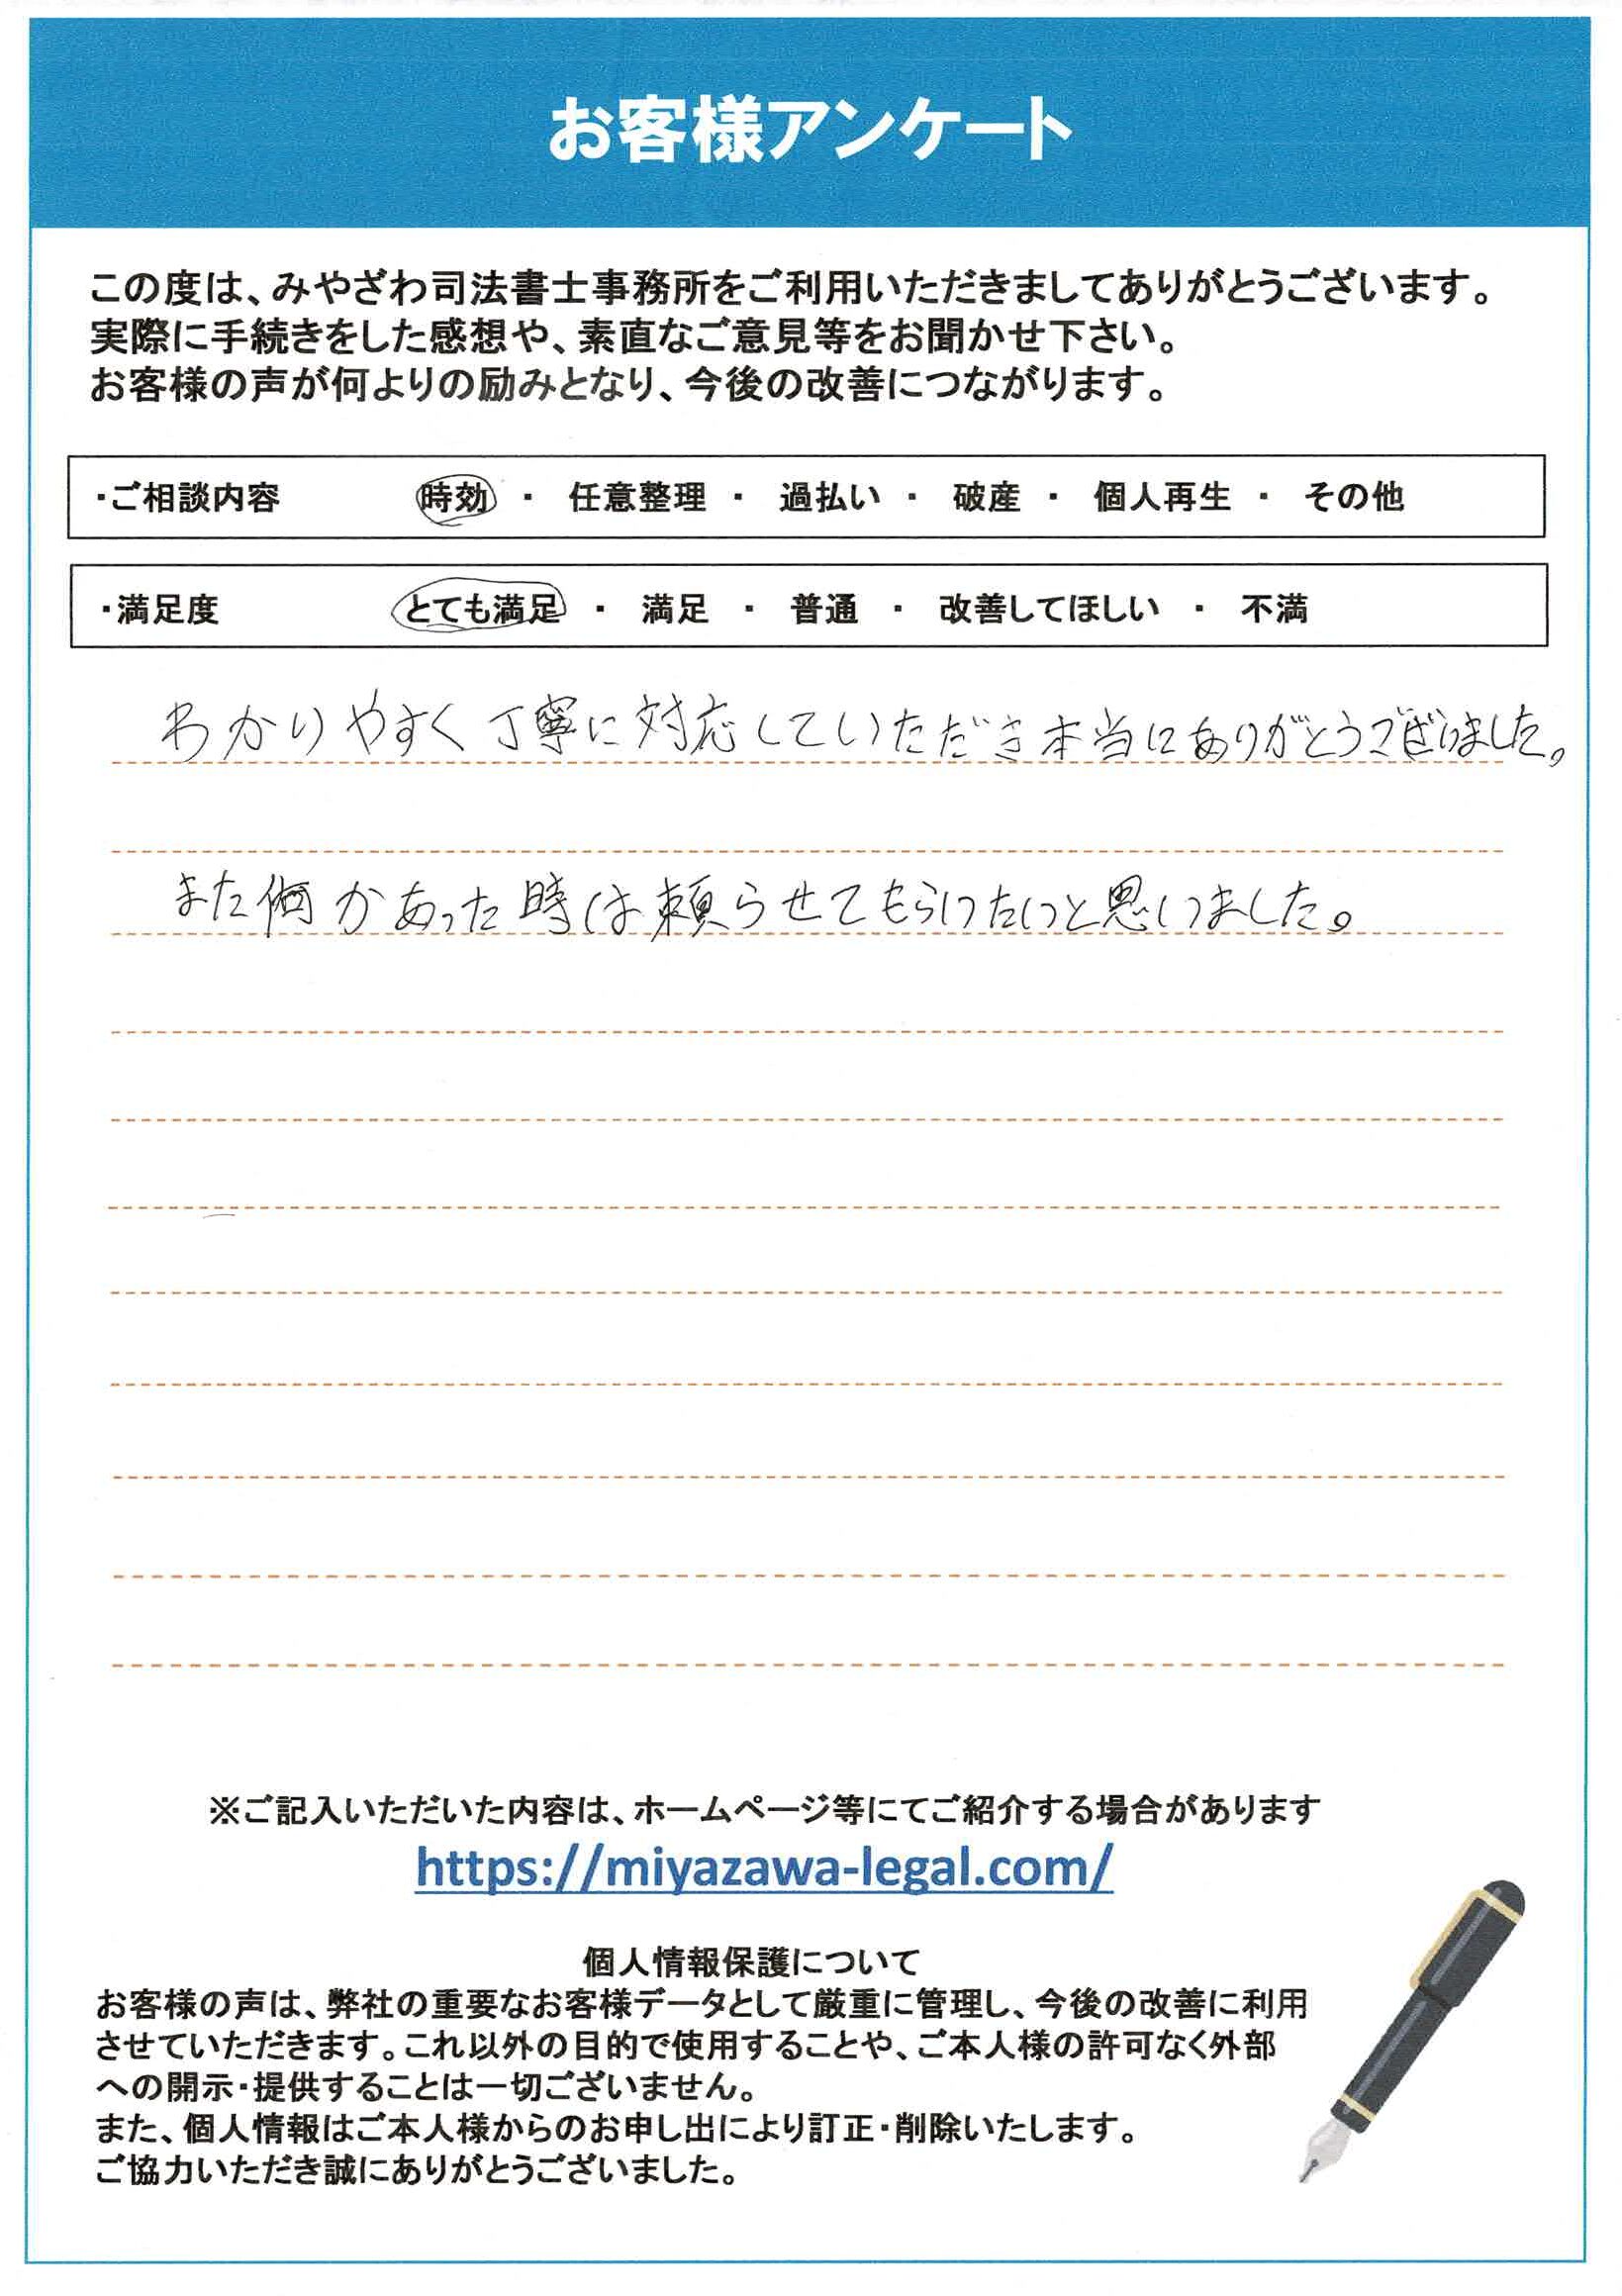 お客様アンケート
この度は、みやざわ司法書士事務所をご利用いただきましてありがとうございます。
実際に手続きをした感想や、素直なご意見等をお聞かせ下さい。
お客様の声が何よりの励みとなり、今後の改善につながります。
・ご相談内容 時効 ・ 任意整理 ・ 過払い ・ 破産 ・ 個人再生 ・ その他
・満足度 とても満足 ・ 満足 ・ 普通 ・ 改善してほしい ・ 不満
わかりやすく丁寧に対応していただき本当にありがとうございました。
また何かあった時は頼らせてもらいたいと思いました。
※ご記入いただいた内容は、ホームページ等にてご紹介する場合があります
https://miyazawa-legal.com/
個人情報保護について
お客様の声は、弊社の重要なお客様データとして厳重に管理し、今後の改善に利用
させていただきます。これ以外の目的で使用することや、ご本人様の許可なく外部
への開示・提供することは一切ございません。
また、個人情報はご本人様からのお申し出により訂正・削除いたします。
ご協力いただき誠にありがとうございました。